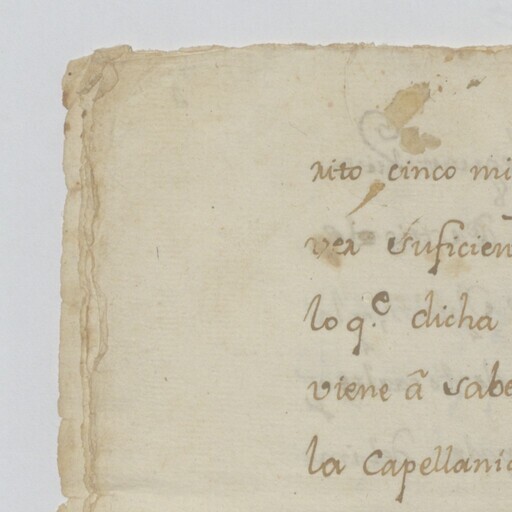 rito cinco mi
ver suficien
lo q.e dicha
viene â sabe
la Capellani